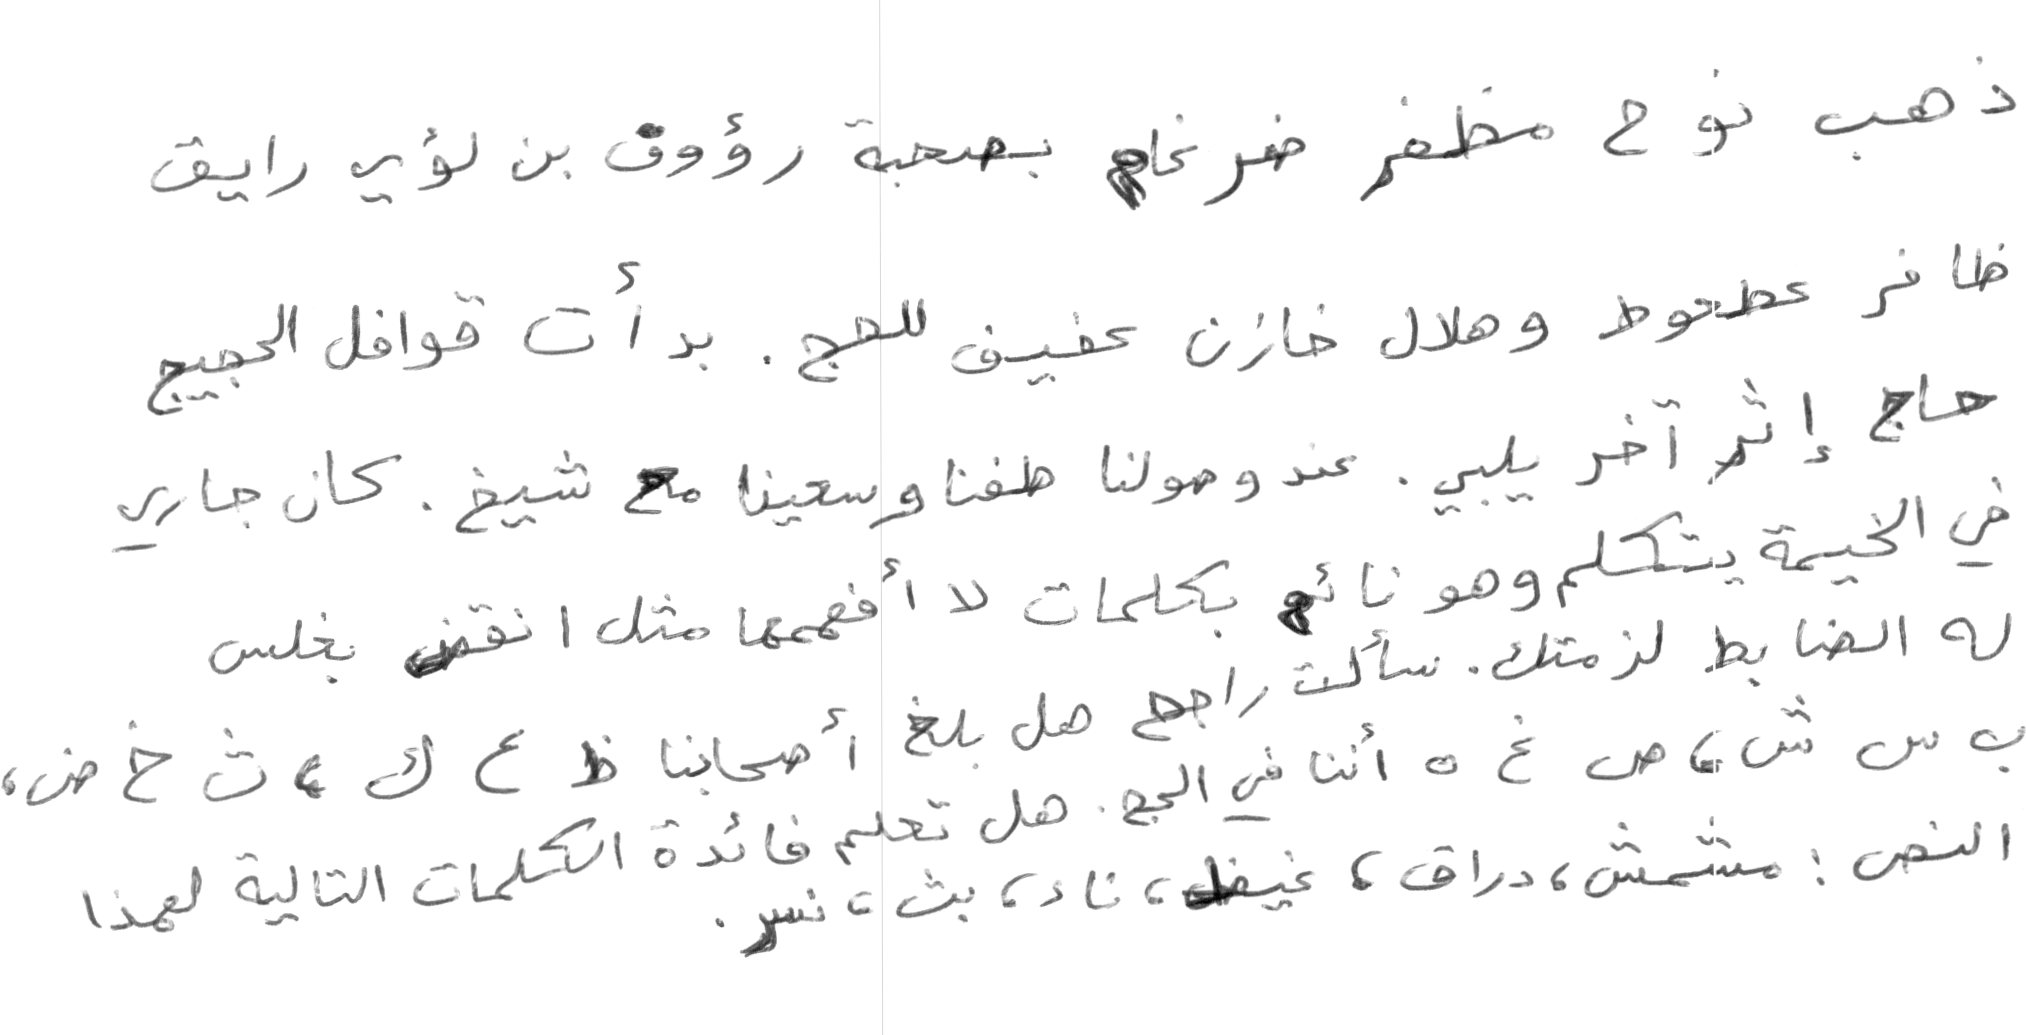 ذهب نوح مظفر ضرغام بصحبة رؤوف بن لؤي رايق
ظافر عطعوط وهلال خازن عفيف للحج. بدأت قوافل الحجيج
حاج إثر آخر يلبي. عند وصولنا طفنا وسعينا مع شيخ. كان جاري
في الخيمة يتكلم وهو نائم بكلمات لا أفهمها مثل انقض بغلس
له الضابط لزمتك. سألت راجح هل بلغ أصحابنا ظ ع ك، ث خ ض،
ب س ش، ص غ ه أننا في الحج. هل تعلم فائدة الكلمات التالية لهذا
النص: مشمش، دراق، غيظ، ناء، بث، نسر.